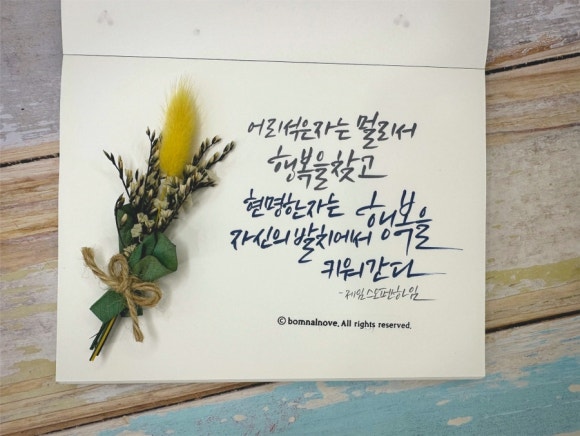 어리석은자는 멀리서
행복을 찾고
현명한자는 행복을
자신의 발치에서
키워간다
-제임스오펜하임
ⓒ bomnalnove. All rights reserved.